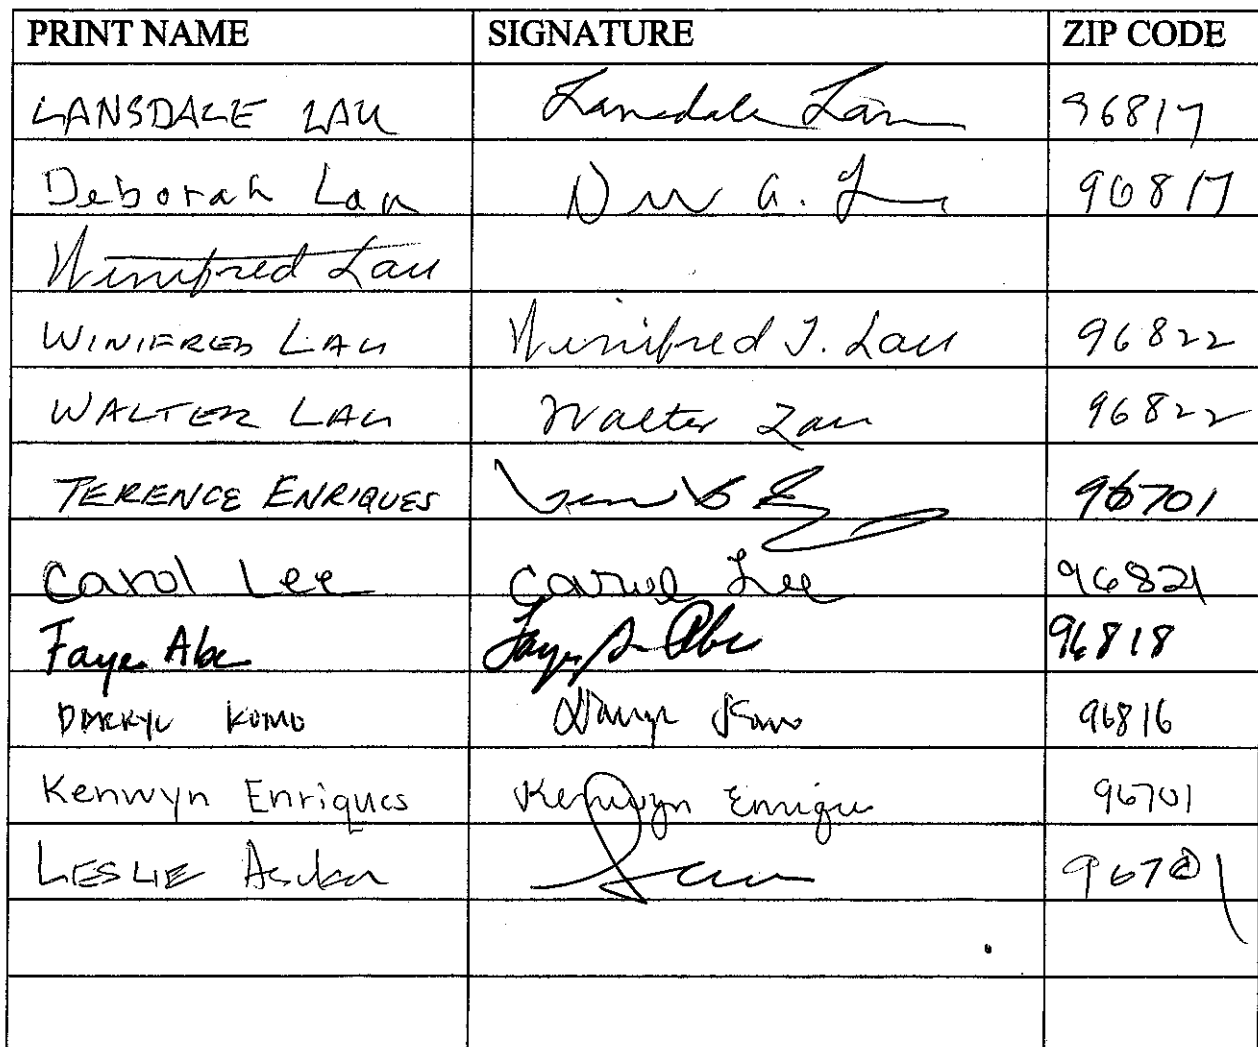 PRINT NAME SIGNATURE ZIP CODE
LANSDALE LAU Lansdale Lau 96817
Deborah Lau 96817
Winifred Lau
WINIFRED LAU Winifred J. Lau 96822
WALTER LAU Walter Lau 96822
TERENCE ENRIQUES 96701
Carol Lee Carol Lee 96821
Faye Abe Faye Abe 96818
DARRYL KOMO Darryl Komo 96816
Kenwyn Enriques Kenwyn Enriques 96701
LESLIE 96701